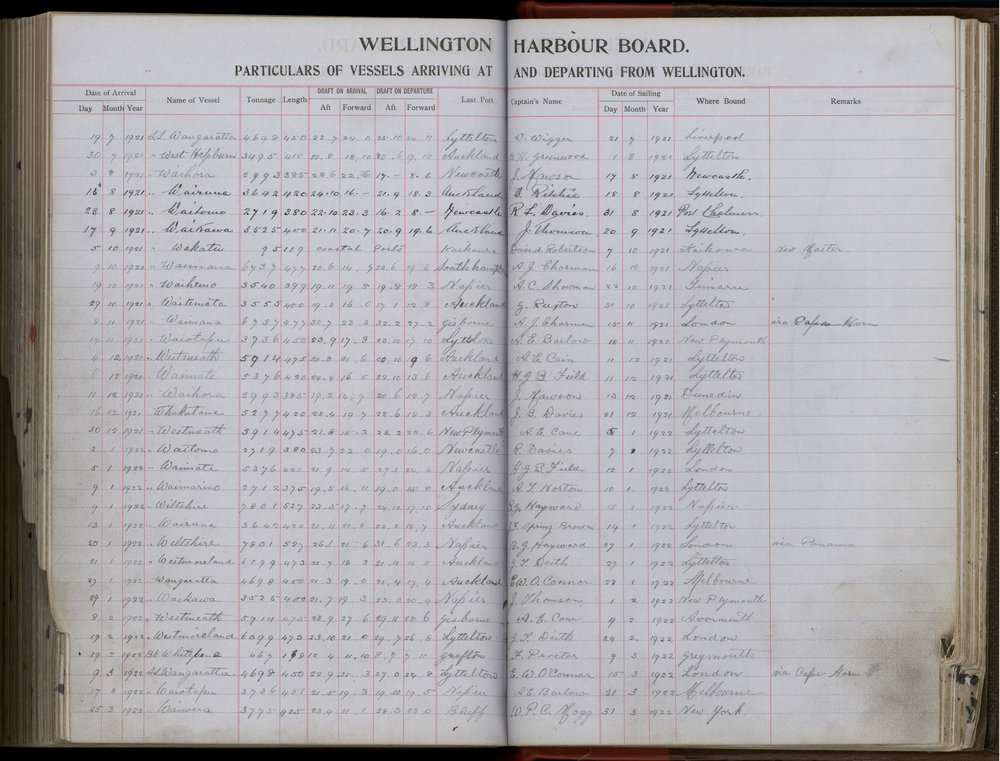 WELLINGTON HARBOUR BOARD.
PARTICULARS OF VESSELS ARRIVING AT AND DEPARTING FROM WELLINGTON.
Date of Arrival Name of Vessel Tonnage Length DRAFT ON ARRIVAL DRAFT ON DEPARTURE Last Port Captain's Name Date of Sailing Where Bound Remarks
Day Month Year Aft Forward Aft Forward Day Month Year
19 7 1921 S.S. Wangaratta 4698 450 23.7 24.0 25.10 24.11 Lyttelton 21 7 1921 Liverpool
30 7 1921 " West Hepburn 3495 410 Auckland 1 8 1921 Lyttelton
3 8 1921 " Waihora 2993 385 17.- 8.6 Newcastle J. Mawson 17 8 1921 Newcastle.
15 8 1921 " Wairuna 3642 420 24.10 16.- 21.9 18.3 Auckland Ritchie 18 8 1921 Lyttelton.
28 8 1921 " Waitomo 2719 380 22.10 23.3 16.2 8.- Newcastle R. L. Davies. 31 8 1921 Port Chalmers
17 9 1921 " Waikawa 3525 400 21.11 20.7 20.9 19.6 Auckland J. Thomson 20 9 1921 Lyttelton.
5 10 1921 " Wakatu 95 119 Coastal Ports Kaikoura David Robertson 7 10 1921 Kaikoura New Master.
9 10 1921 " Waimana 477 20.6 19.6 Southampton A. J. Charman 16 10 1921 Napier
19 10 1921 " Waihemo 3540 399 19.11 19.8 19.8 18.3 Napier A. C. Showman 22 10 1921 Timaru
29 10 1921 " Waitemata 3555 400 19.0 16.0 17.1 12.8 Auckland 31 10 1921 Lyttelton
8 11 1921 " Waimana 6737 477 30.7 23.3 32.2 27.2 Gisborne A. J. Charman 15 11 1921 London via Cape Horn
17 11 1921 " Waiotapu 3736 450 23.9 17.8 17.10 Lyttelton A. E. Barlow 18 11 1921 New Plymouth
4 12 1921 " Westmeath 5914 475 20.8 21.6 Auckland A. E. Cain 11 12 1921 Lyttelton
6 12 1921 " Waimate 5376 420 24.4 16.5 22.10 13.6 Auckland H. G. B. Field 11 12 1921 Lyttelton
11 12 1921 " Waihora 2993 385 19.2 14.9 20.6 12.7 Napier J. Mawson 13 12 1921 Dunedin
16 12 1921 " Whakatane 5277 420 22.4 19.7 22.6 Auckland J. B. Davies 21 12 1921 Melbourne
30 12 1921 " Westmeath 5914 475 21.8 15.3 23.2 22.6 New Plymouth A. E. Cane 1 1922 Lyttelton
2 1 1922 " Waitomo 2719 380 23.7 22.0 19.0 16.0 Newcastle R. Davies 7 1922 Lyttelton
5 1 1922 " Waimate 5376 420 21.9 14.5 27.1 24.4 Napier H. G. B. Field 12 1 1922 London
9 1 1922 " Waimarino 2712 375 19.5 16.11 19.0 15.8 Auckland A. T. Norton 10 1 1922 Lyttelton
9 1 1922 " Wiltshire 7801 527 23.5 17.7 24.10 17.10 Sydney B. G. Hayward 15 1 1922 Napier
13 1 1922 " Wairuna 3642 420 21.11 21.0 22.0 18.7 Auckland Spring Brown 14 1 1922 Lyttelton
20 1 1922 " Wiltshire 7801 527 26.1 21.6 31.6 23.3 Napier B. G. Hayward 27 1 1922 London via Panama
21 1 1922 " Westmoreland 6099 473 21.7 18.3 21.10 15.11 Auckland J. T. Deith 27 1 1922 Lyttelton
27 1 1922 " Wangaratta 4698 450 21.3 19.0 21.4 17.4 Auckland E. W. O'Connor 28 1 1922 Melbourne
29 1 1922 " Waikawa 3525 400 21.7 19.3 23.0 20.4 Napier J. Thomson 1 2 1922 New Plymouth
8 2 1922 " Westmeath 5914 475 28.9 27.6 29.11 28.6 Gisborne A. E. Cane 9 2 1922 Avonmouth
19 2 1922 " Westmoreland 6099 473 23.10 21.0 29.7 26.8 Lyttelton J. T. Deith 24 2 1922 London
19 2 1922 Whitepine 467 12.4 11.10 8.7 7.11 Grafton F. Proctor 9 3 1922 Greymouth
9 3 1922 S.S. Wangaratta 4698 450 22.9 21.3 27.0 24.8 Lyttelton E. W. O'Connor 15 3 1922 London via Cape Horn
17 3 1922 " Waiotapu 3736 451 21.5 19.3 19.10 19.5 Napier A. E. Barlow 21 3 1922 Melbourne
25 3 1922 " Waiwera 3775 425 23.4 21.1 28.3 23.0 Bluff W. P. C. Mogg 31 3 1922 New York.